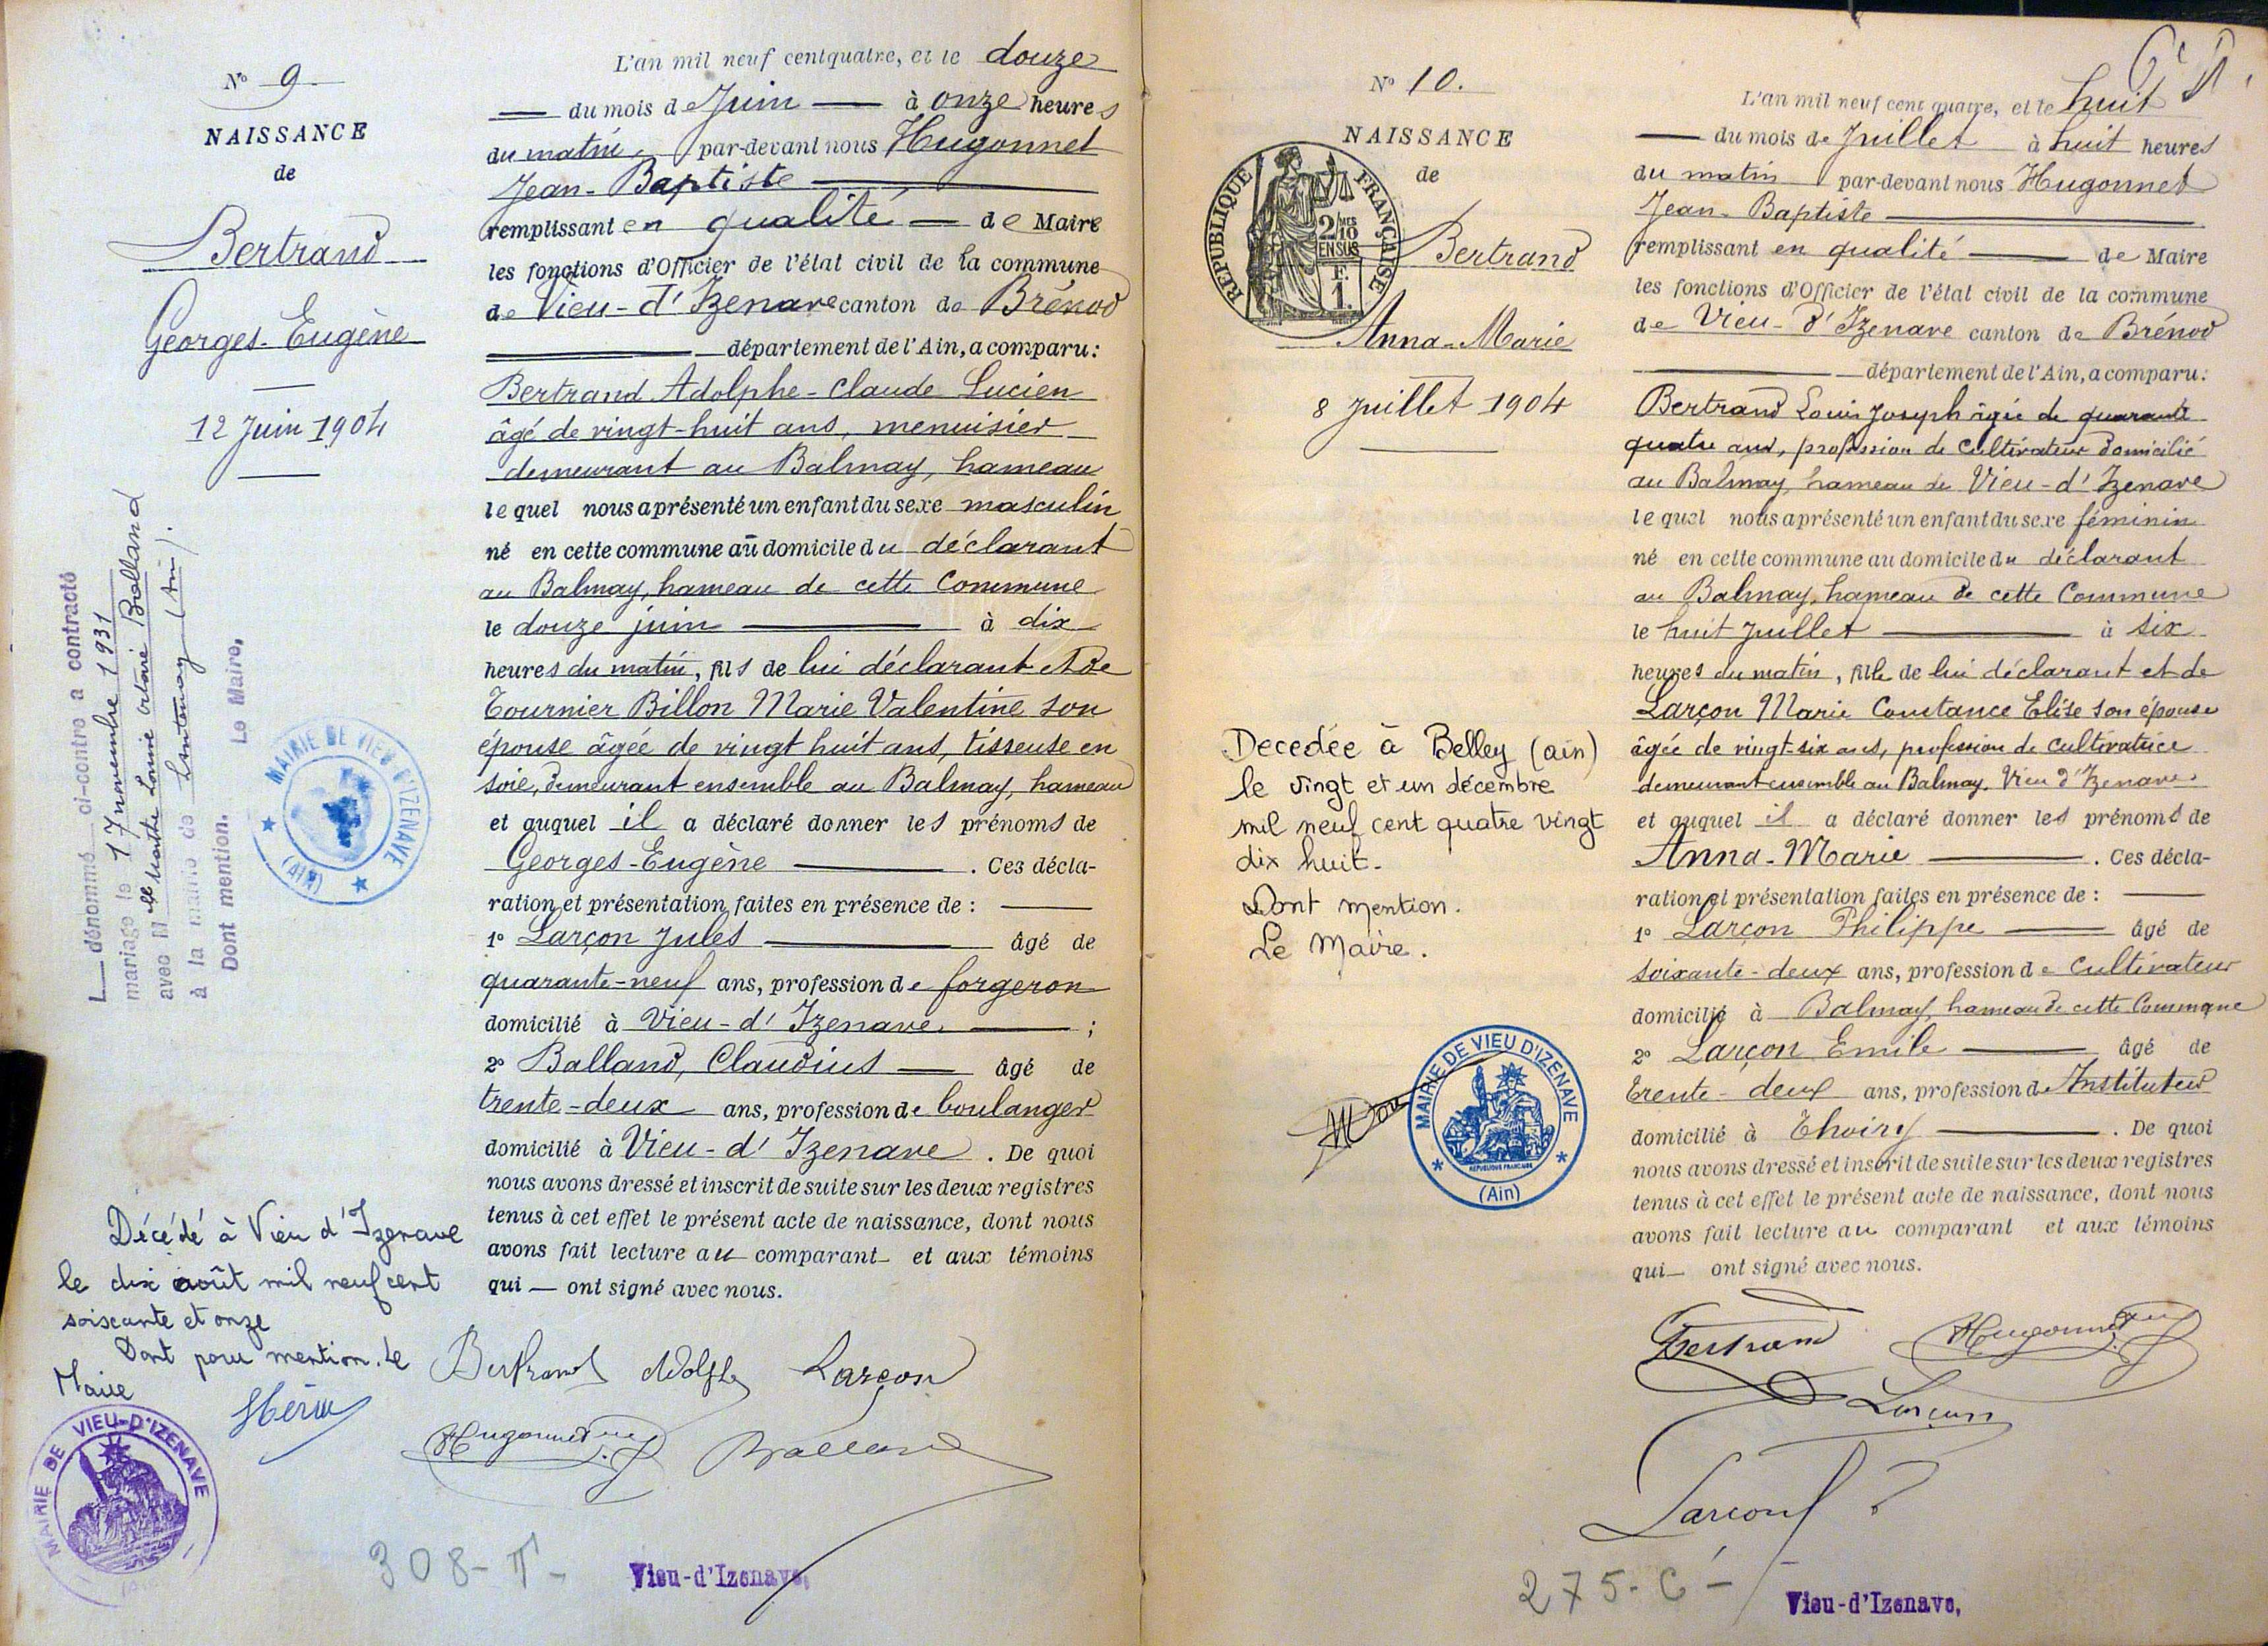 N° 9
NAISSANCE
de
Bertrand
Georges-Eugène
12 Juin 1904
L dénommé ci-contre a contracté
mariage le 17 novembre 1931
avec Mlle Marthe Louise Octavie Balland
à la mairie de Lantenay (Ain).
Dont mention. Le Maire,
MAIRIE DE VIEU D'IZENAVE
(AIN)
Décédé à Vieu d'Izenave
le dix août mil neuf cent
soixante et onze
Dont pour mention. Le
Maire
MAIRIE DE VIEU-D'IZENAVE
L'an mil neuf cent quatre, et le douze
du mois de Juin à onze heures
du matin, par-devant nous Hugonnet
Jean-Baptiste
remplissant en qualité de Maire
les fonctions d'Officier de l'état civil de la commune
de Vieu-d'Izenave canton de Brénod
département de l'Ain, a comparu:
Bertrand Adolphe-Claude Lucien
âgé de vingt-huit ans, menuisier
demeurant au Balmay, hameau
lequel nous a présenté un enfant du sexe masculin
né en cette commune au domicile du déclarant
au Balmay, hameau de cette Commune
le douze juin à dix
heures du matin, fils de lui déclarant et de
Tournier Billon Marie Valentine son
épouse âgée de vingt huit ans, tisseuse en
soie, demeurant ensemble au Balmay, hameau
et auquel il a déclaré donner les prénoms de
Georges-Eugène . Ces décla-
ration et présentation faites en présence de :
1° Larçon Jules âgé de
quarante-neuf ans, profession de forgeron
domicilié à Vieu-d'Izenave ;
2° Balland, Claudius âgé de
trente-deux ans, profession de boulanger
domicilié à Vieu-d'Izenave . De quoi
nous avons dressé et inscrit de suite sur les deux registres
tenus à cet effet le présent acte de naissance, dont nous
avons fait lecture au comparant et aux témoins
qui ont signé avec nous.
Bertrand Adolphe Larçon
Hugonnet Balland
308-T-
Vieu-d'Izenave,
N° 10.
NAISSANCE
de
REPUBLIQUE FRANÇAISE
2/10
EN SUS
F.
1.
Bertrand
Anna-Marie
8 Juillet 1904
Decedée à Belley (ain)
le vingt et un décembre
mil neuf cent quatre vingt
dix huit.
Dont mention.
Le Maire.
MAIRIE DE VIEU D'IZENAVE
REPUBLIQUE FRANCAISE
(Ain)
L'an mil neuf cent quatre, et le huit
du mois de Juillet à huit heures
du matin par-devant nous Hugonnet
Jean-Baptiste
remplissant en qualité de Maire
les fonctions d'Officier de l'état civil de la commune
de Vieu-d'Izenave canton de Brénod
département de l'Ain, a comparu:
Bertrand Louis Joseph âgé de quarante
quatre ans, profession de Cultivateur domicilié
au Balmay, hameau de Vieu-d'Izenave
lequel nous a présenté un enfant du sexe féminin
né en cette commune au domicile du déclarant
au Balmay, hameau de cette Commune
le huit Juillet à six
heures du matin, fille de lui déclarant et de
Larçon Marie Constance Elise son épouse
âgée de vingt-six ans, profession de cultivatrice
demeurant ensemble au Balmay, Vieu d'Izenave
et auquel il a déclaré donner les prénoms de
Anna-Marie . Ces décla-
ration et présentation faites en présence de :
1° Larçon Philippe âgé de
soixante-deux ans, profession de Cultivateur
domicilié à Balmay, hameau de cette Commune
2° Larçon Emile âgé de
trente-deux ans, profession de Instituteur
domicilié à Thoiry . De quoi
nous avons dressé et inscrit de suite sur les deux registres
tenus à cet effet le présent acte de naissance, dont nous
avons fait lecture au comparant et aux témoins
qui ont signé avec nous.
Bertrand Hugonnet
Larçon
Larçon
275-C-
Vieu-d'Izenave,